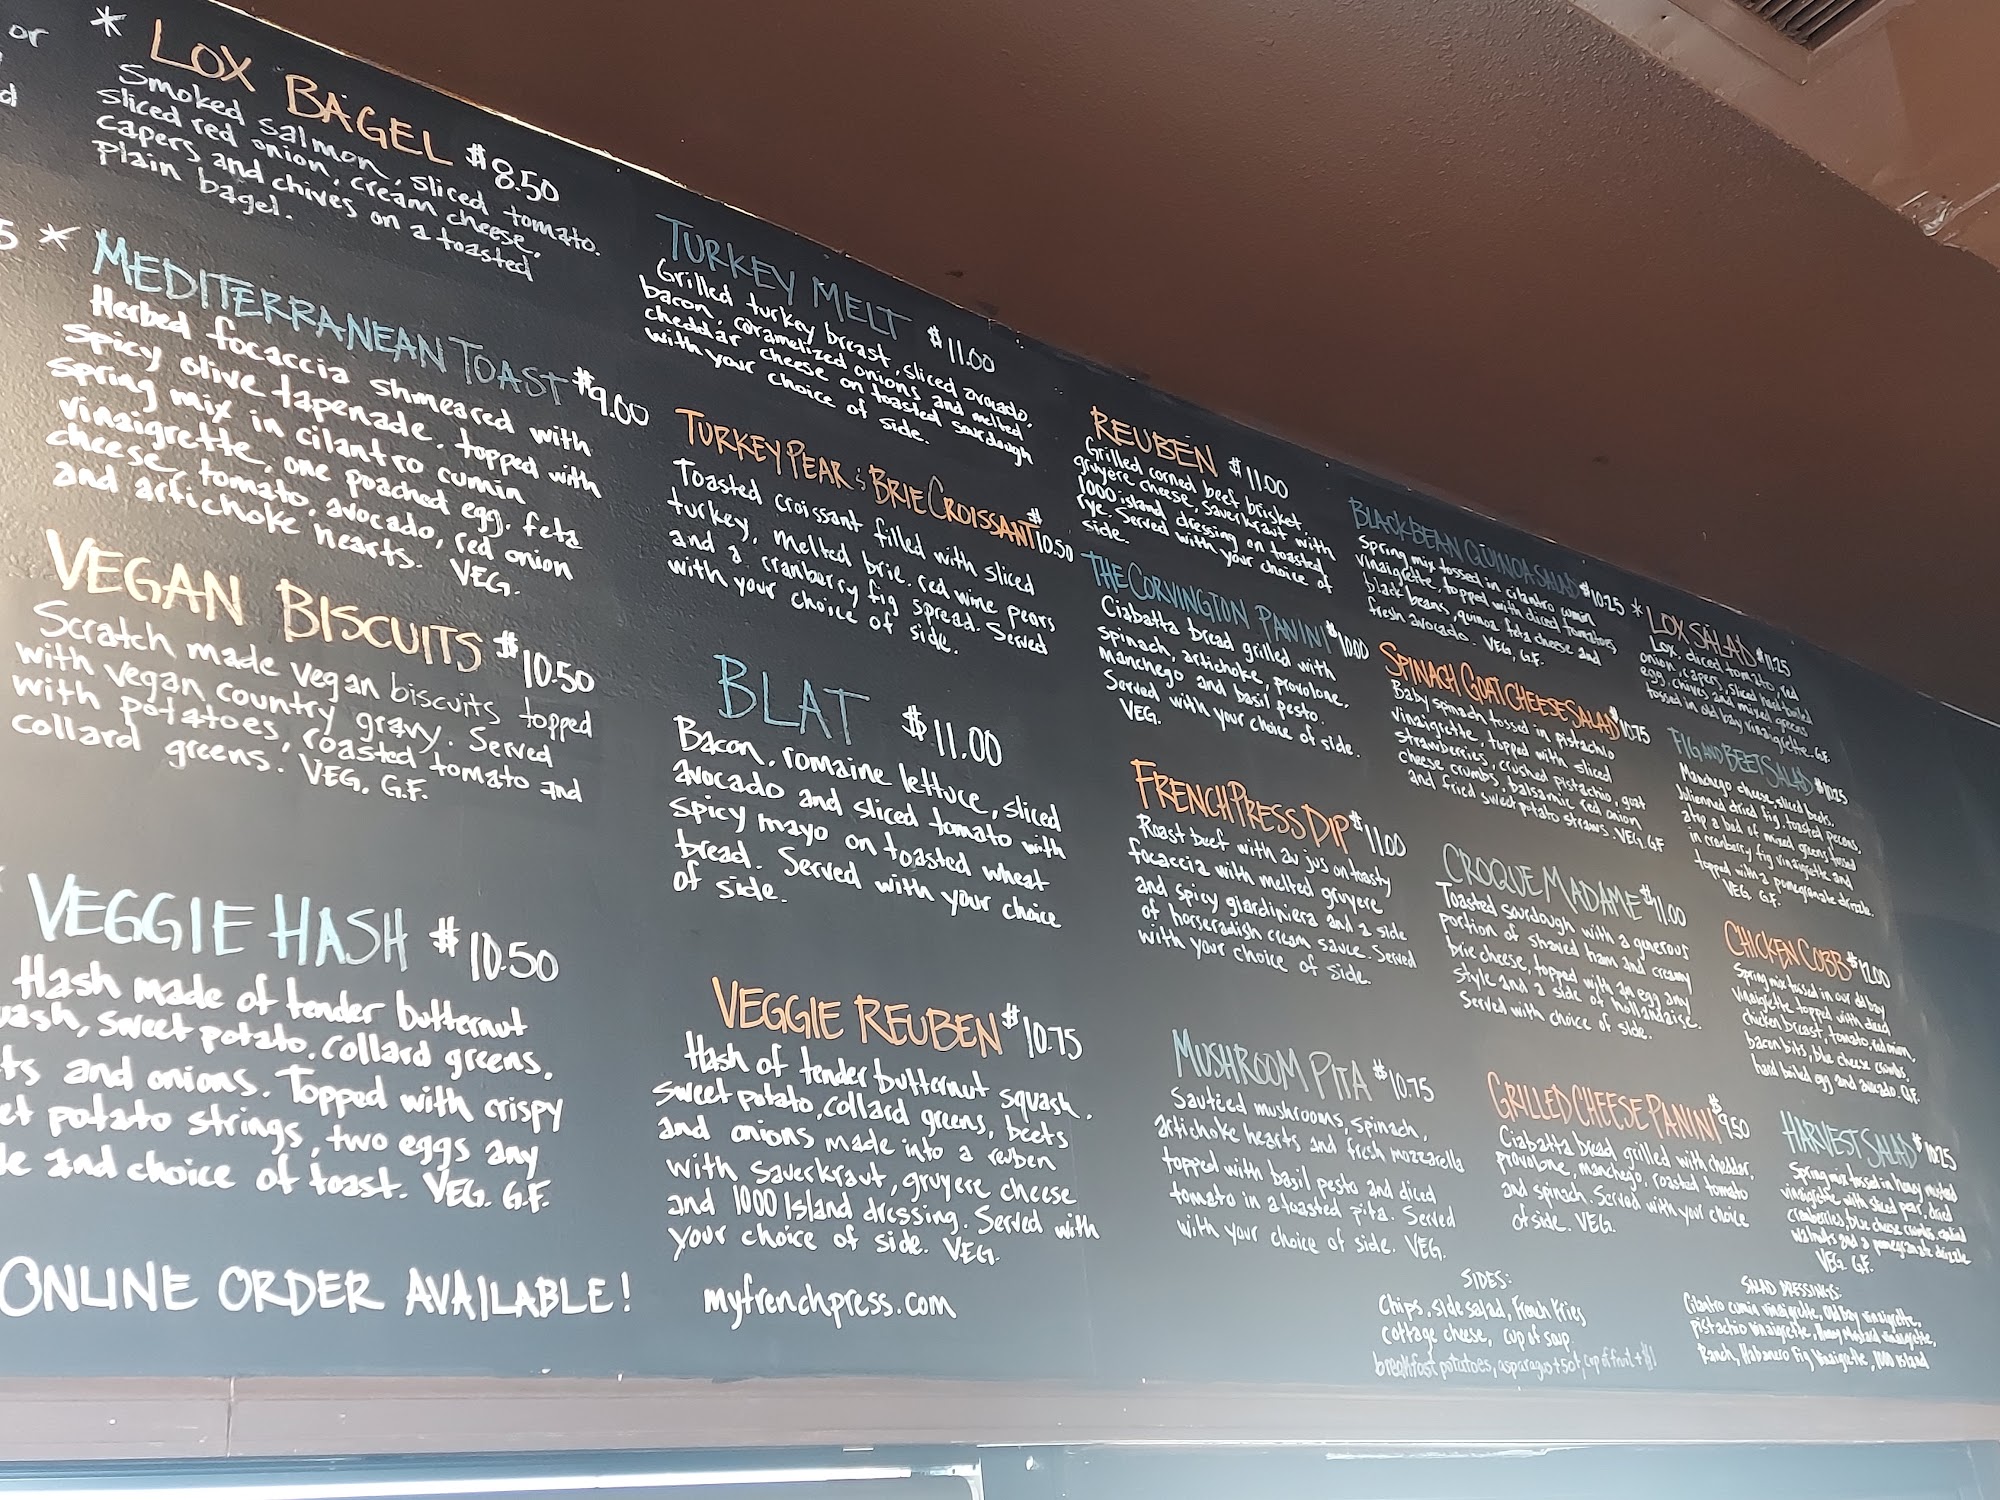 or
d
* LOX BAGEL $8.50
Smoked salmon, sliced tomato.
sliced red onion, cream cheese,
capers and chives on a toasted
Plain bagel.
5 * MEDITERRANEAN TOAST $9.00
Herbed focaccia shmeared with
spicy olive tapenade, topped with
spring mix in cilantro cumin
vinaigrette, one poached egg, feta
cheese, tomato, avocado, red onion
and artichoke hearts. VEG.
VEGAN BISCUITS $10.50
Scratch made vegan biscuits topped
with vegan country gravy. Served
with potatoes, roasted tomato and
collard greens. VEG, G.F.
VEGGIE HASH $10.50
Hash made of tender butternut
uash, sweet potato, collard greens,
ts and onions. Topped with crispy
et potato strings, two eggs any
le and choice of toast. VEG. G.F.
ONLINE ORDER AVAILABLE!
TURKEY MELT $11.00
Grilled turkey breast, sliced avocado,
bacon, caramelized onions and melted
cheddar cheese on toasted sourdough
with your choice of side.
TURKEY PEAR & BRIE CROISSANT $10.50
Toasted croissant filled with sliced
turkey, melted brie, red wine pears
and a cranberry fig spread. Served
with your choice of side.
BLAT $11.00
Bacon, romaine lettuce, sliced
avocado and sliced tomato with
spicy mayo on toasted wheat
bread. Served with your choice
of side.
VEGGIE REUBEN $10.75
Hash of tender butternut squash,
sweet potato, collard greens, beets
and onions made into a reuben
with sauerkraut, gruyere cheese
and 1000 Island dressing. Served with
your choice of side. VEG.
myfrenchpress.com
REUBEN $11.00
Grilled corned beef brisket,
gruyère cheese, sauerkraut with
1000 island dressing on toasted
rye. Served with your choice of
side.
THE CORVINGTON PANINI $10.00
Ciabatta bread grilled with
spinach, artichoke, provolone,
manchego and basil pesto.
Served with your choice of side.
VEG.
FRENCH PRESS DIP $11.00
Roast beef with au jus on toasty
focaccia with melted gruyere
and spicy giardiniera and a side
of horseradish cream sauce. Served
with your choice of side.
MUSHROOM PITA $10.75
Sautéed mushrooms, spinach,
artichoke hearts and fresh mozzarella
topped with basil pesto and diced
tomato in a toasted pita. Served
with your choice of side. VEG.
BLACK BEAN QUINOA SALAD $10.25
Spring mix tossed in cilantro cumin
vinaigrette, topped with diced tomatoes,
black beans, quinoa, feta cheese and
fresh avocado. VEG, G.F.
SPINACH GOAT CHEESE SALAD $10.75
Baby spinach tossed in pistachio
vinaigrette, topped with sliced
strawberries, crushed pistachio, goat
cheese crumbs, balsamic red onion
and fried sweet potato straws. VEG. G.F
CROQUE MADAME $11.00
Toasted sourdough with a generous
portion of shaved ham and creamy
brie cheese, topped with an egg any
style and a side of hollandaise.
Served with choice of side.
GRILLED CHEESE PANINI $9.50
Ciabatta bread grilled with cheddar,
provolone, manchego, roasted tomato
and spinach. Served with your choice
of side. VEG.
SIDES:
Chips, side salad, French Fries
Cottage cheese, cup of soup
breakfast potatoes, asparagus +50¢, cup of fruit +$1
* LOX SALAD $11.25
Lox, diced tomato, red
onion, capers, sliced hard boiled
egg, chives and mixed greens
tossed in old bay vinaigrette. G.F.
FIG AND BEET SALAD $10.25
Manchego cheese, sliced beets,
Julienned dried fig, toasted pecans,
atop a bed of mixed greens tossed
in cranberry fig vinaigrette and
topped with a pomegranate drizzle.
VEG. G.F.
CHICKEN COBB $12.00
Spring mix tossed in our old bay
Vinaigrette topped with diced
chicken breast, tomato, red onion,
bacon bits, blue cheese crumbs,
hard boiled egg and avocado. G.F.
HARVEST SALAD $10.25
Spring mix tossed in honey mustard
vinaigrette with sliced pear, dried
cranberries, blue cheese crumbs, candied
walnuts and a pomegranate drizzle
VEG. G.F.
SALAD DRESSINGS:
Cilantro cumin vinaigrette, Old Bay vinaigrette,
pistachio vinaigrette, Honey Mustard vinaigrette,
Ranch, Habanero Fig Vinaigrette, 1000 Island